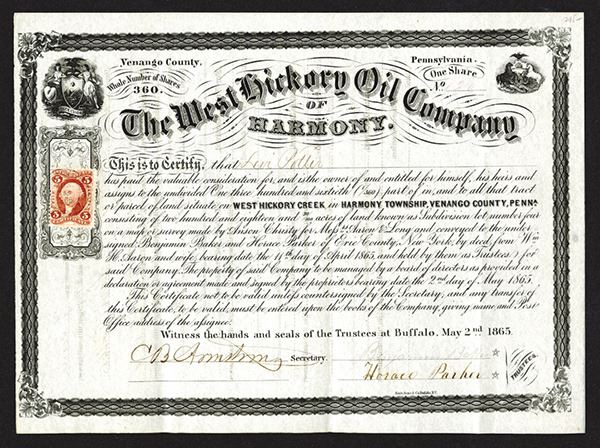 Venango County.
Pennsylvania.
Whole Number of Shares
360.
One Share
No
The West Hickory Oil Company
OF
HARMONY.
This is to Certify, that Levi Potter
has paid the valuable consideration for, and is the owner of and entitled for himself, his heirs and
assigns to the undivided One three hundred and sixtieth (1/360) part of in, and to all that tract
or parcel of land situate on WEST HICKORY CREEK in HARMONY TOWNSHIP, VENANGO COUNTY, PENNA
consisting of two hundred and eighteen and acres of land known as Subdivision lot number four
on a map or survey made by Anson Christy for Messrs Aaron & Long and conveyed to the under-
signed Benjamin Baker and Horace Parker of Erie County, New York, by deed from Wm
H. Aaron and wife, bearing date the 14th day of April 1865, and held by them as Trustees) for
said Company. The property of said Company to be managed by a board of directors as provided in a
declaration or agreement made and signed by the proprietors bearing date the 2nd day of May 1865.
This Certificate not to be valid unless countersigned by the Secretary, and any transfer of
this Certificate, to be valid, must be entered upon the books of the Company, giving name and Post
Office address of the assignee.
Witness the hands and seals of the Trustees at Buffalo, May 2nd 1865.
C B Armstrong Secretary.
Benjamin Baker
Horace Parker
TRUSTEES.
5
5